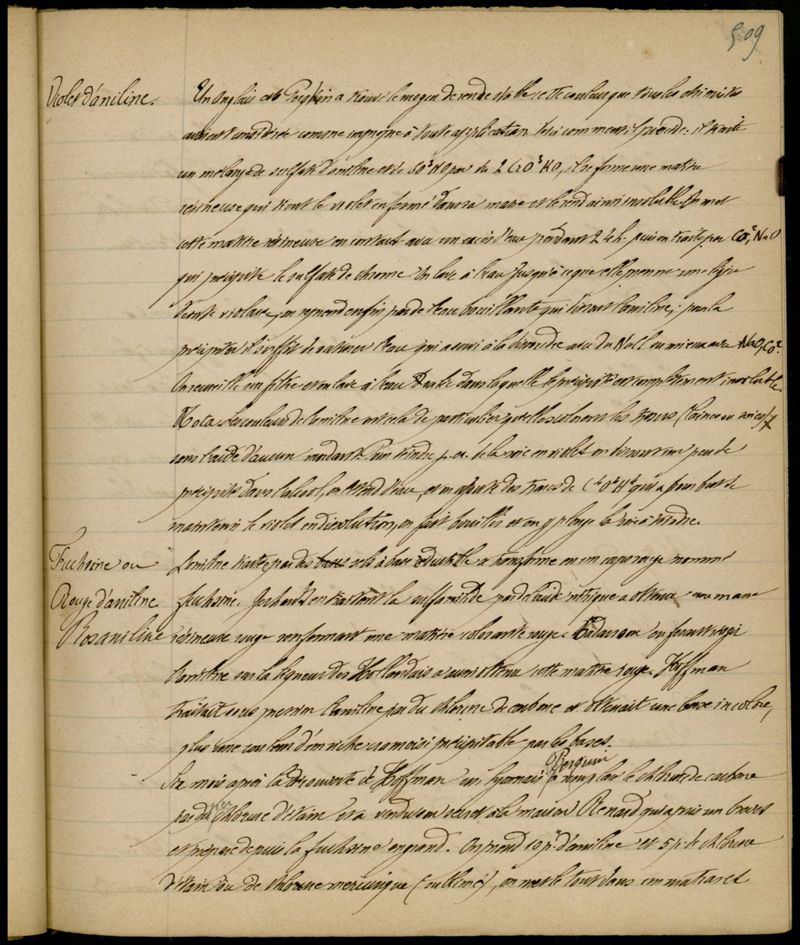 509
Violet d'aniline.
Un Anglais Mr Perpkin a trouvé le moyen de rendre stable cette couleur que tous les chimistes
avaient considérée comme impropre à toute application. Voici comment il procède. il traite
un mélange de sulfate d'aniline et de SO³HO par du 2CrO³KO, il se forme une matière
résineuse qui tient le violet enfermé dans sa masse et le rend ainsi insoluble. On met
cette matière résineuse en contact avec un excès d'eau pendant 24h. puis on traite par CO²,NaO
qui précipite le sulfate de chrome. On lave à l'eau jusqu'à ce que elle prenne une légère
teinte violacée, on reprend enfin par de l'eau bouillante qui dissout l'aniline; pour la
précipiter il suffit de saturer l'eau qui a servi à la dissoudre avec du NaCl ou mieux avec NaO,CO².
On recueille sur filtre et on lave à l'eau froide dans laquelle le précipité est complètement insoluble.
Nota. Les couleurs de l'aniline ont cela de particulier qu'elles colorent les tissus (laines ou soies)
sans l'aide d'aucun mordant. Pour teindre p. ex. de la soie en violet on dissout un peu de
précipité dans l'alcool, on étend d'eau, et on ajoute des traces de C⁴O⁶H⁴ qui a pour but de
maintenir le violet en dissolution, on fait bouillir et on y plonge la soie à teindre.
Fuchsine ou
Rouge d'aniline
Rosaniline
L'aniline traitée par des sels à base réductible se transforme en un corps rouge nommé
fuchsine. Gerhardt en traitant la par l'acide nitrique a obtenu une masse
résineuse rouge renfermant une matière colorante rouge. en faisant réagir
l'aniline sur la liqueur des Hollandais a aussi obtenu cette matière rouge. Hoffman
traitait sous pression l'aniline par du chlorure de carbone et obtenait une base incolore,
plus une couleur d'un riche cramoisi précipitable par les bases.
Six mois après la découverte de Hoffman un lyonnais Verguin a remplacé le chlorure de carbone
par du per chlorure d'étain et a vendu son secret à la maison Renard qui a pris un brevet
et prépare depuis la fuchsine en grand. On prend 10 p. d'aniline et 5 p. de chlorure
d'étain ou de chlorure mercurique (sublimé), on met le tout dans un matras et